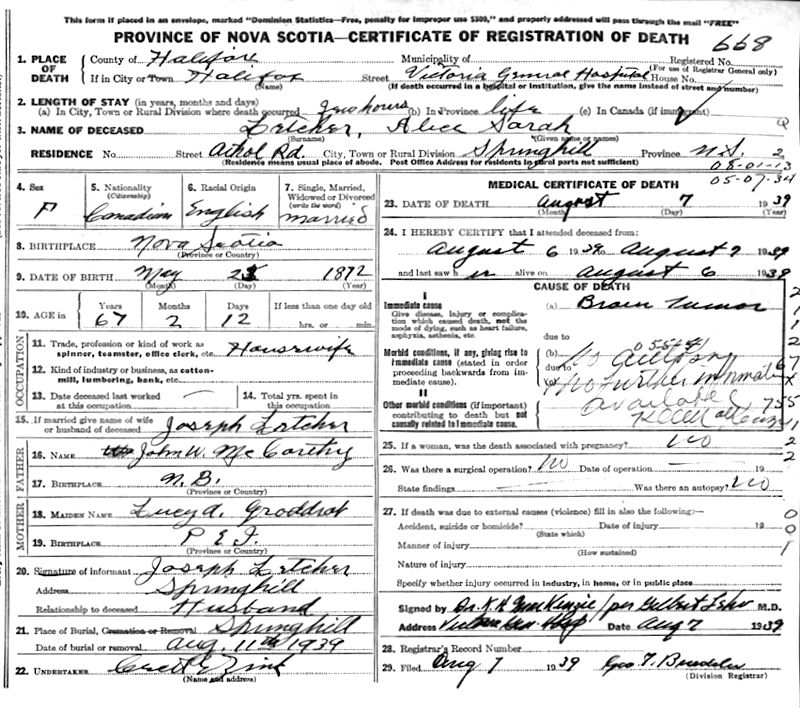 This form if placed in an envelope, marked "Dominion Statistics—Free, penalty for improper use $300," and properly addressed will pass through the mail "FREE"
PROVINCE OF NOVA SCOTIA—CERTIFICATE OF REGISTRATION OF DEATH 668
1. PLACE OF DEATH County of Halifax Municipality of Registered No.
(For use of Registrar General only)
If in City or Town Halifax Street Victoria General Hospital House No.
(Name) (If death occurred in a hospital or institution, give the name instead of street and number)
2. LENGTH OF STAY (in years, months and days)
(a) In City, Town or Rural Division where death occurred hours (b) In Province life (c) In Canada (if immigrant)
3. NAME OF DECEASED Letcher, Alice Sarah
(Surname) (Given name or names)
RESIDENCE No. Street Athol Rd. City, Town or Rural Division Springhill Province N.S. 2
(Residence means usual place of abode. Post Office Address for residents in rural parts not sufficient) 08-01-13
05-07-34
4. Sex F
5. Nationality (Citizenship) Canadian
6. Racial Origin English
7. Single, Married, Widowed or Divorced (write the word) Married
8. BIRTHPLACE Nova Scotia
(Province or Country)
9. DATE OF BIRTH May 25 1872
(Month) (Day) (Year)
10. AGE in Years 67 Months 2 Days 12 If less than one day old
hrs. or min.
OCCUPATION
11. Trade, profession or kind of work as spinner, teamster, office clerk, etc. Housewife
12. Kind of industry or business, as cotton-mill, lumbering, bank, etc.
13. Date deceased last worked at this occupation —
14. Total yrs. spent in this occupation
15. If married give name of wife or husband of deceased Joseph Letcher
FATHER
16. NAME John W. McCarthy
17. BIRTHPLACE N.B.
(Province or Country)
MOTHER
18. MAIDEN NAME Lucy A.
19. BIRTHPLACE P E I.
(Province or Country)
20. Signature of informant Joseph Letcher
Address Springhill
Relationship to deceased Husband
21. Place of Burial, Cremation or Removal Springhill
Date of burial or removal Aug. 11th 1939
22. UNDERTAKER
(Name and address)
MEDICAL CERTIFICATE OF DEATH
23. DATE OF DEATH August 7 1939
(Month) (Day) (Year)
24. I HEREBY CERTIFY that I attended deceased from:
August 6 1939 to August 7 1939
and last saw her alive on August 6 1939
CAUSE OF DEATH
I
Immediate cause
Give disease, injury or complication which caused death, not the mode of dying, such as heart failure, asphyxia, asthenia, etc.
(a) Brain Tumor
due to
Morbid conditions, if any, giving rise to immediate cause (stated in order proceeding backwards from immediate cause).
(b) No autopsy
due to
(c) No further information available
II
Other morbid conditions (if important) contributing to death but not causally related to immediate cause.
755
25. If a woman, was the death associated with pregnancy? No
26. Was there a surgical operation? No Date of operation — 19
State findings — Was there an autopsy? No
27. If death was due to external causes (violence) fill in also the following:—
Accident, suicide or homicide? Date of injury 19
(State which)
Manner of injury
(How sustained)
Nature of injury
Specify whether injury occurred in industry, in home, or in public place
Signed by Dr. K. A. MacKenzie / per Gilbert M.D.
Address Victoria Gen. Hosp Date Aug 7 1939
28. Registrar's Record Number
29. Filed Aug 7 1939 Geo T.
(Division Registrar)